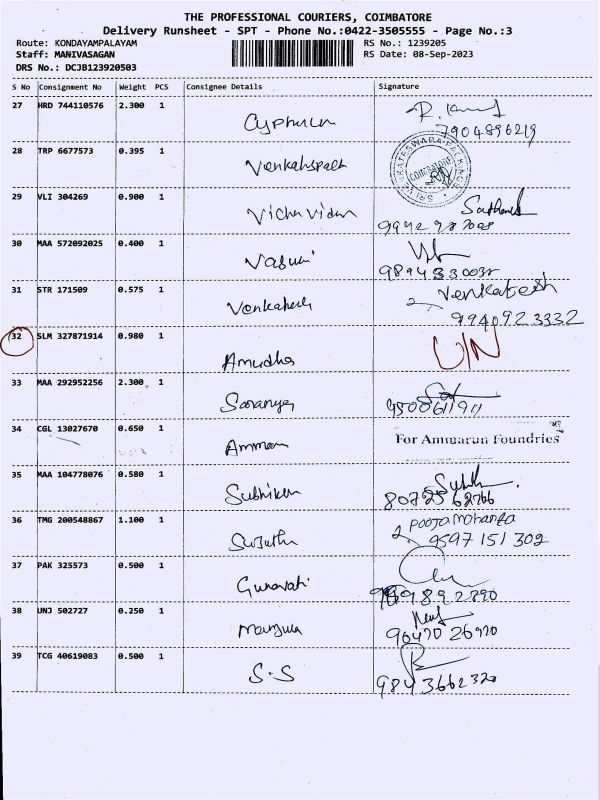 THE PROFESSIONAL COURIERS, COIMBATORE
Delivery Runsheet - SPT - Phone No.:0422-3505555 - Page No.:3
Route: KONDAYAMPALAYAM RS No.: 1239205
Staff: MANIVASAGAN RS Date: 08-Sep-2023
DRS No.: DCJB123920503
S No Consignment No Weight PCS Consignee Details Signature
27 HRD 744110576 2.300 1
7904896219
28 TRP 6677573 0.395 1
SRI VENKATESWARA PACKINGS
COIMBATORE
29 VLI 304269 0.900 1
30 MAA 572092025 0.400 1
31 STR 171509 0.575 1 Venkatesh Venkatesh
9940923332
32 SLM 327871914 0.980 1 Amudha U/N
33 MAA 292952256 2.300 1 Saranya
9500611911
34 CGL 13027670 0.650 1 Amman For Ammarun Foundries
35 MAA 104778076 0.580 1
36 TMG 200548867 1.100 1 Sujatha
9597 151 302
37 PAK 325573 0.500 1
38 UNJ 502727 0.250 1 Manjula
90470 26970
39 TCG 40619083 0.500 1 S.S
9843662320